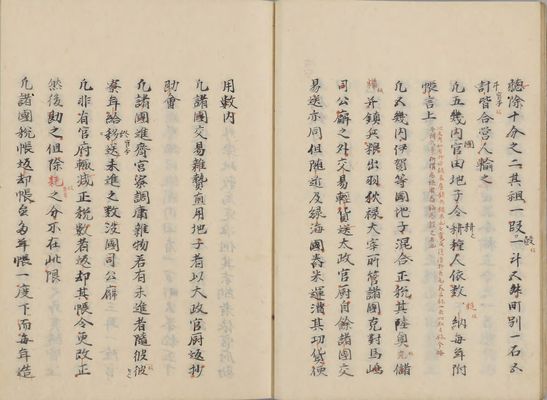 總除十分之二其租一段二斗五舛町別一石五
討皆合営人輸之
凡五畿内官田地子令耕種人依數納每年附
帳言上
凡五畿内伊賀等國地子混合正税其陸奥充儲
糒并鎮兵粮出羽狄禄大宰所管諸國充對馬嶋
司公廨之外交易輕貨送太政官厨自餘諸國交
易送亦同但随近及緣海國舂米運漕其功賃便
用數内
凡諸國交易雜贄直用地子者以太政官厨返抄
勘會
凡諸國進齋宮寮調庸雜物若有未進者隨彼
寮年終移送未進之數没國司公廨
凡非有官府輙減正税數者返却其帳令更改正
然後勘之但除耗之分不在此限
凡諸國税帳返却帳至每年帳一度下而每年造